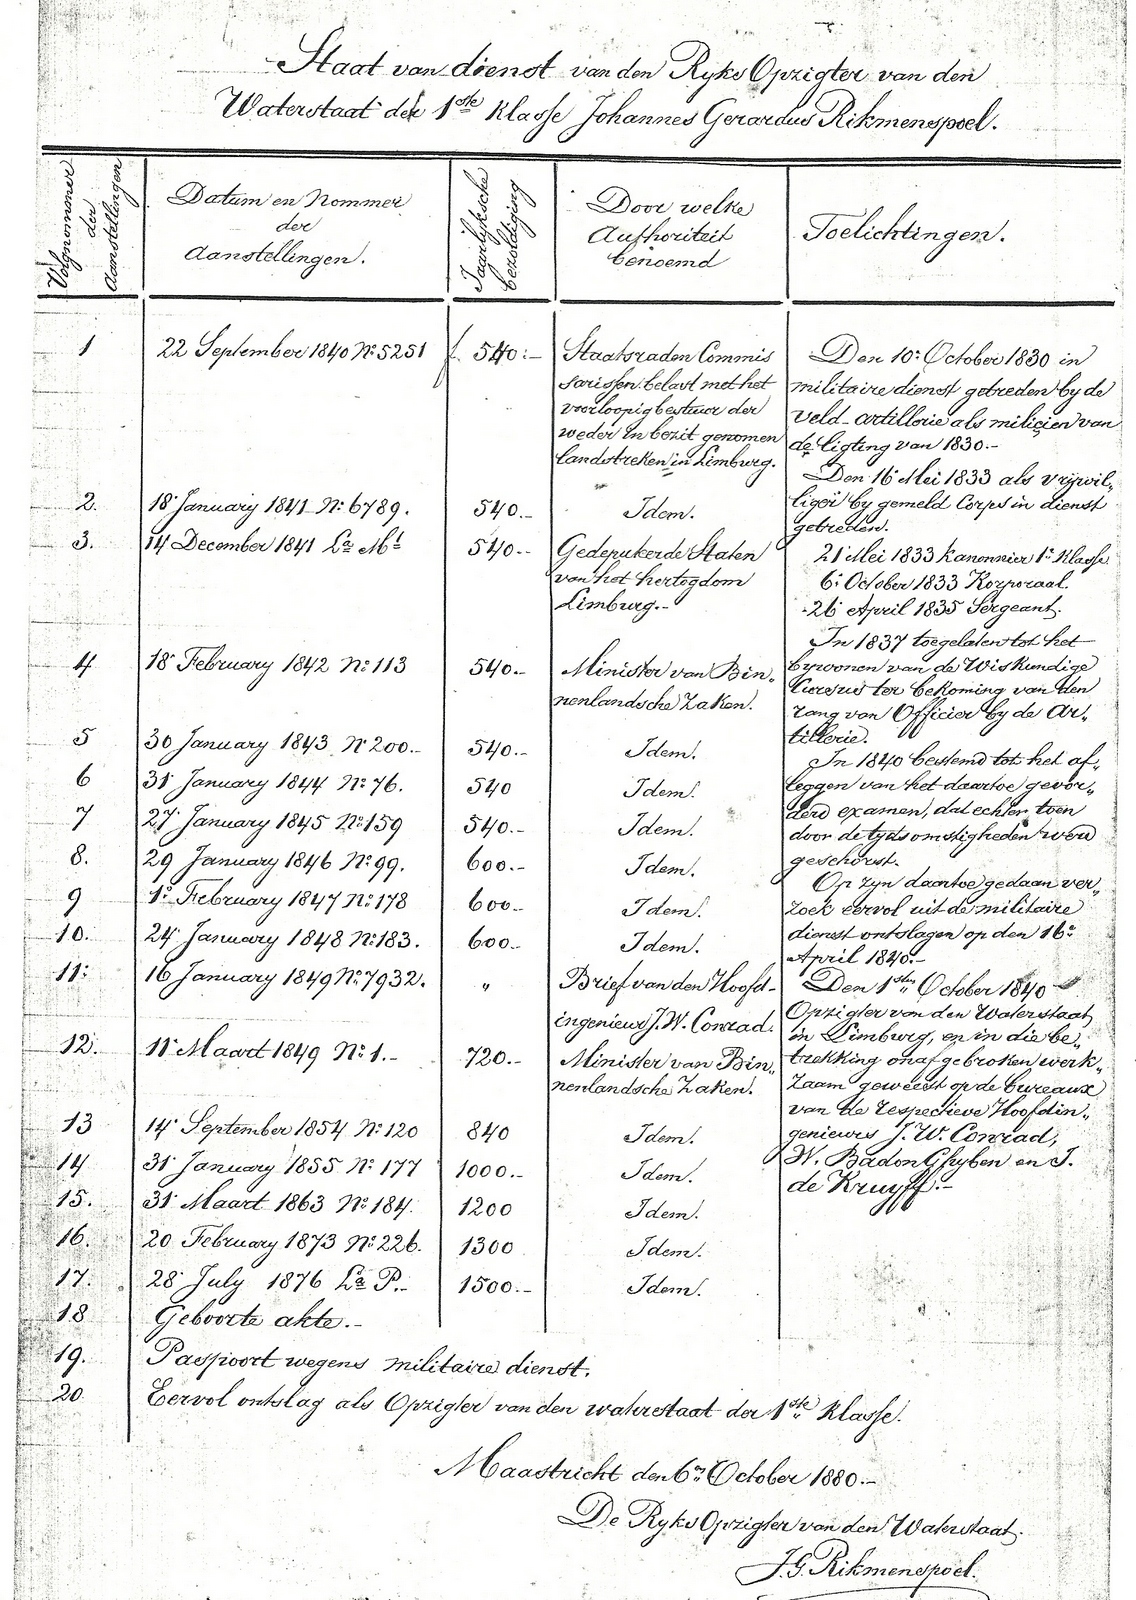 Staat van dienst van den Ryks Opzigter van den
Waterstaat der 1ste Klasse Johannes Gerardus Rikmenspoel.
Volgnommer
der
Aanstellingen
Datum en Nommer
der
Aanstellingen.
Jaarlyksche
bezoldiging
Door welke
Authoriteit
benoemd
Toelichtingen.
1 22 September 1840 No: 5251 f. 540:-
Staatsraden Commis
sarissen belast met het
voorloopig bestuur der
weder in bezit genomen
landstreken in Limburg.
2. 18 January 1841 No: 6789. 540.- Idem.
3. 14 December 1841 La M1 540.-
Gedeputeerde Staten
van het hertogdom
Limburg.-
4 18 February 1842 No: 113 540.-
Minister van Bin„
nenlandsche Zaken.
5 30 January 1843 No 200.- 540.- Idem.
6 31 January 1844 No: 76. 540 Idem.
7 27 January 1845 No: 159 540.- Idem.
8. 29 January 1846 No: 99. 600.- Idem.
9 1o February 1847 No: 178 600.- Idem.
10. 24 January 1848 No: 183. 600.- Idem.
11: 16 January 1849 No: 7932. „
Brief van den Hoofd-
ingenieur J. W. Conrad.
12. 11 Maart 1849 No: 1.- 720.-
Minister van Bin„
nenlandsche Zaken.
13 14 September 1854 No: 120 840 Idem.
14 31 January 1855 No: 177 1000.- Idem.
15. 31 Maart 1863 No: 184. 1200 Idem.
16. 20 February 1873 No: 226. 1300 Idem.
17. 28 July 1876 La P.- 1500.- Idem.
18 Geboorte akte.-
19. Paspoort wegens militaire dienst.
20 Eervol ontslag als Opzigter van den waterstaat der 1ste Klasse.
Den 10: October 1830 in
militaire dienst getreden by de
veld-artillerie als milicien van
de ligting van 1830.-
Den 16 Mei 1833 als vrijwil„
liger by gemeld Corps in dienst
getreden.
21 Mei 1833 Kanonnier 1e Klasse
6: October 1833 Korporaal.
26 April 1835 Sergeant.
In 1837 toegelaten tot het
bywonen van de Wiskundige
Cursus ter bekoming van den
rang van Officier by de Ar„
tillerie.
In 1840 bestemd tot het af„
leggen van het daartoe gevor„
derd examen, dat echter toen
door de tyds omstigheden werd
geschorst.
Op zyn daartoe gedaan ver„
zoek eervol uit de militaire
dienst ontslagen op den 16e
April 1840.-
Den 1sten October 1840
Opzigter van den Waterstaat
in Limburg, en in die be„
trekking onafgebroken werk„
zaam geweest op de bureaux
van de respectieve Hoofdin„
genieurs J. W. Conrad,
W. Badon Ghyben en J.
de Kruyff.-
Maastricht den 6en October 1880.-
De Ryks Opzigter van den Waterstaat.
J. G. Rikmenspoel.